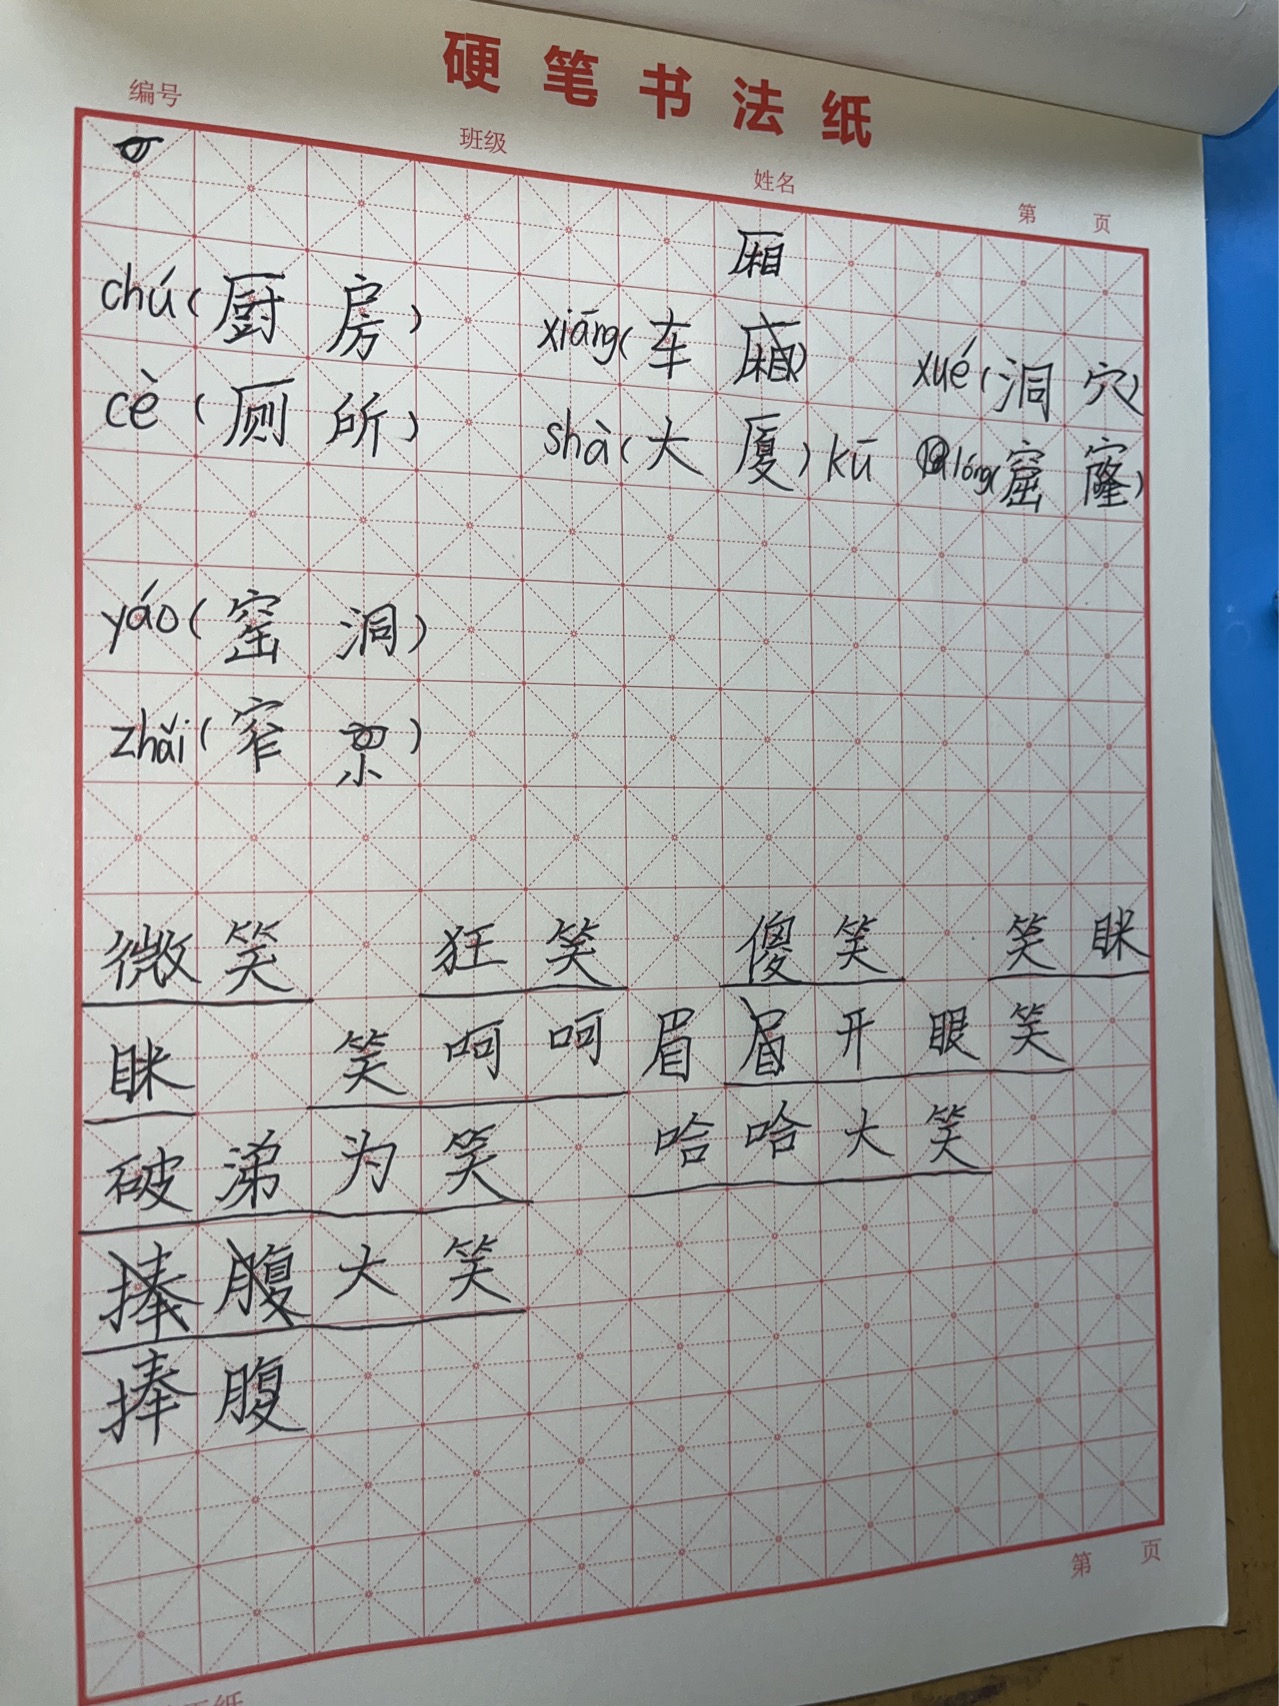 硬笔书法纸
编号 班级 姓名 第 页
厢
chú(厨房) xiāng(车厢) xué(洞穴)
cè(厕所) shà(大厦) kū lóng(窟窿)
yáo(窑洞)
zhǎi(窄小)
微笑 狂笑 傻笑 笑眯
眯 笑呵呵 眉眉开眼笑
破涕为笑 哈哈大笑
捧腹大笑
捧腹
第 页